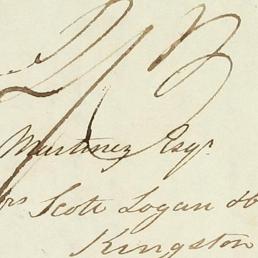 2/3
Martinez Esqr
rs Scott Logan &
Kingston